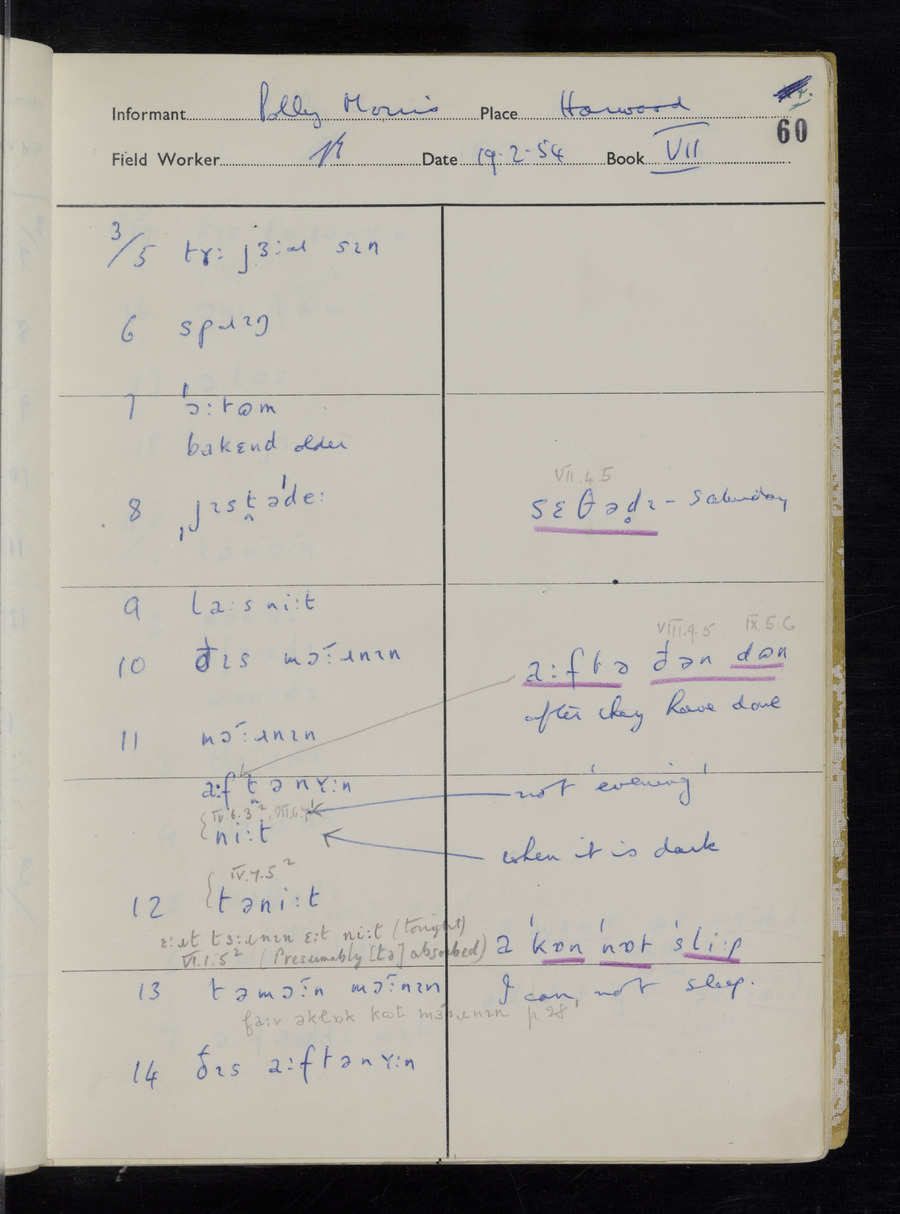 Informant Polly Morris Place Harwood
60
Field Worker Date 19·2·54 Book VII
3/5 tɤ: jɜ:ɹ sɪn
6 spɹɪŋ
7 ˈɔ:təm
bakɛnd older
8 ˌjɪst̪əˈde:
VII.4.5
sɛθəd̥ɪ - Saturday
9 la:s ni:t
10 ðɪs mɔ:ɹnɪn
VIII.9.5 IX.5.6
a:ftə ðən dɷn
after they have done
11 mɔ:ɹnɪn
a:ft̪ənʏ:n
not 'evening'
ni:t
when it is dark
IV.7.5²
12 təni:t
ɛ:ɹt tɜ:ɹnɪn ɛ:t ni:t (tonight)
VI.1.5² (Presumably [tə] absorbed)
a ˈkɒn ˈnɒt ˈsli:p
I can not sleep.
13 təmɔ:n mɔ:nɪn
fa:v əklɒk kɷt mɔ:ɹnɪn p 28
14 ðɪs a:ftənʏ:n